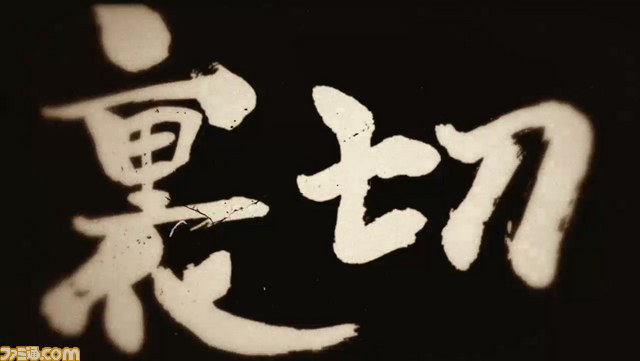 裏切
ファミ通.com